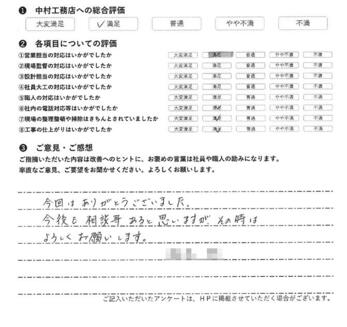 ❶ 中村工務店への総合評価
大変満足 ✓満足 普通 やや不満 不満
❷ 各項目についての評価
①営業担当の対応はいかがでしたか 大変満足 満足 普通 やや不満 不満
②現場監督の対応はいかがでしたか 大変満足 満足 普通 やや不満 不満
③設計担当の対応はいかがでしたか 大変満足 満足 普通 やや不満 不満
④社員大工の対応はいかがでしたか 大変満足 満足 普通 やや不満 不満
⑤職人の対応はいかがでしたか 大変満足 満足 普通 やや不満 不満
⑥社内の電話対応等はいかがでしたか 大変満足 満足 普通 やや不満 不満
⑦現場の整理整頓や掃除はきちんとされていましたか 大変満足 満足 普通 やや不満 不満
⑧工事の仕上がりはいかがでしたか 大変満足 満足 普通 やや不満 不満
❸ ご意見・ご感想
ご指摘いただいた内容は改善へのヒントに、お褒めの言葉は社員や職人の励みになります。
率直なご意見、ご要望をお聞かせください。よろしくお願いします。
今回はありがとうございました。
今後も相談等あると思いますがその時は
よろしくお願いします。
ご記入いただいたアンケートは、HPに掲載させていただく場合がございます。